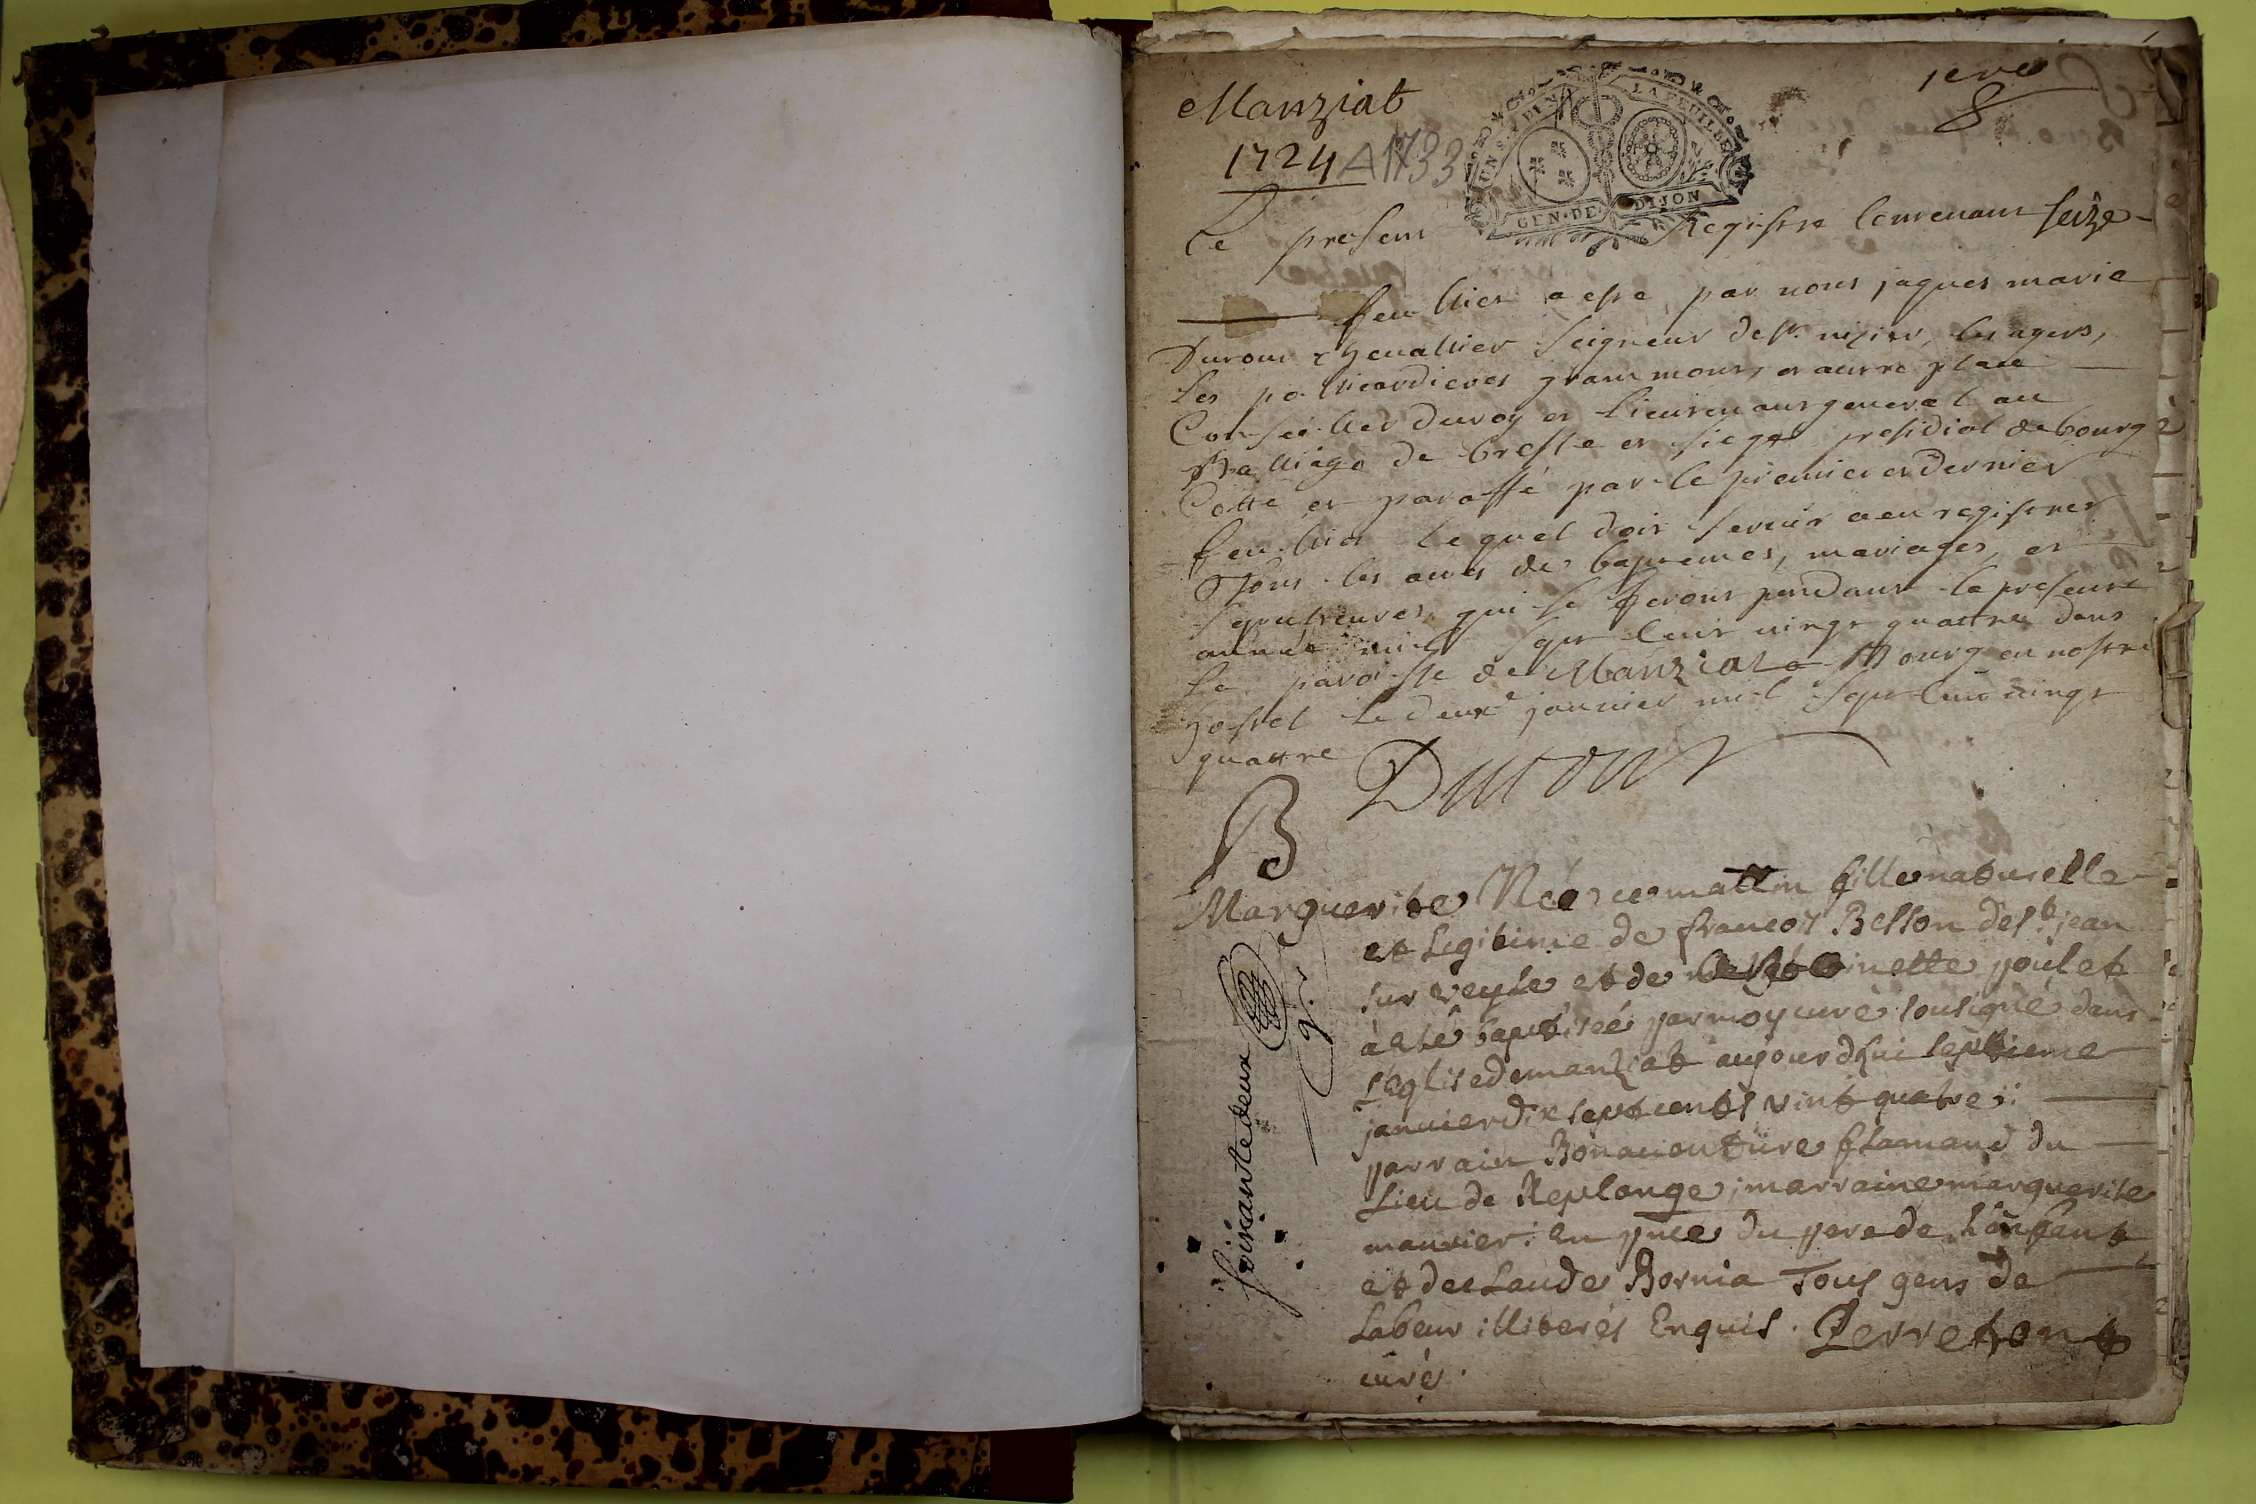 Manziat
1724 A 1733
1ere
UN S. 4 DEN. LA FEUILLE
GEN. DE DIJON
Le present Registre Contenant seize
feuillies a esté par nous jaques marie
Dutour chevallier seigneur de st. nizier,
les pollieardieres grammont, et autre place
Conseillier du roy et lieutenant general au
Balliage de bresse et siege presidial de bourg
Cotté et paraffé par le premier et dernier
feuillies lequel doit servir a enregistrer
Tous les actes de baptemes, mariages, et
sepultures qui se feront pendant la presente
année mil sept cent vingt quattre dans
la paroisse de Manziat a Bourg en nostre
hostel le deuxe janvier mil sept cent vingt
quattre Dutour
B
Marguerite Née ce mattin fille naturelle
et Legitime de francois Besson de st jean
sur veyle et de poulet
à esté baptisée par moy curé sousigné dans
L'eglise de manziat aujourdhui septieme
janvier dix sept cents vint quatre;
parrain Bonaventure flamand du
Lieu de Replonge; marraine marguerite
mauvier: en pnce du pere de L'enfant
et de claude Bornia Tous gens de
Labeur illiterés Enquis. Perret
curé.
soixante deux